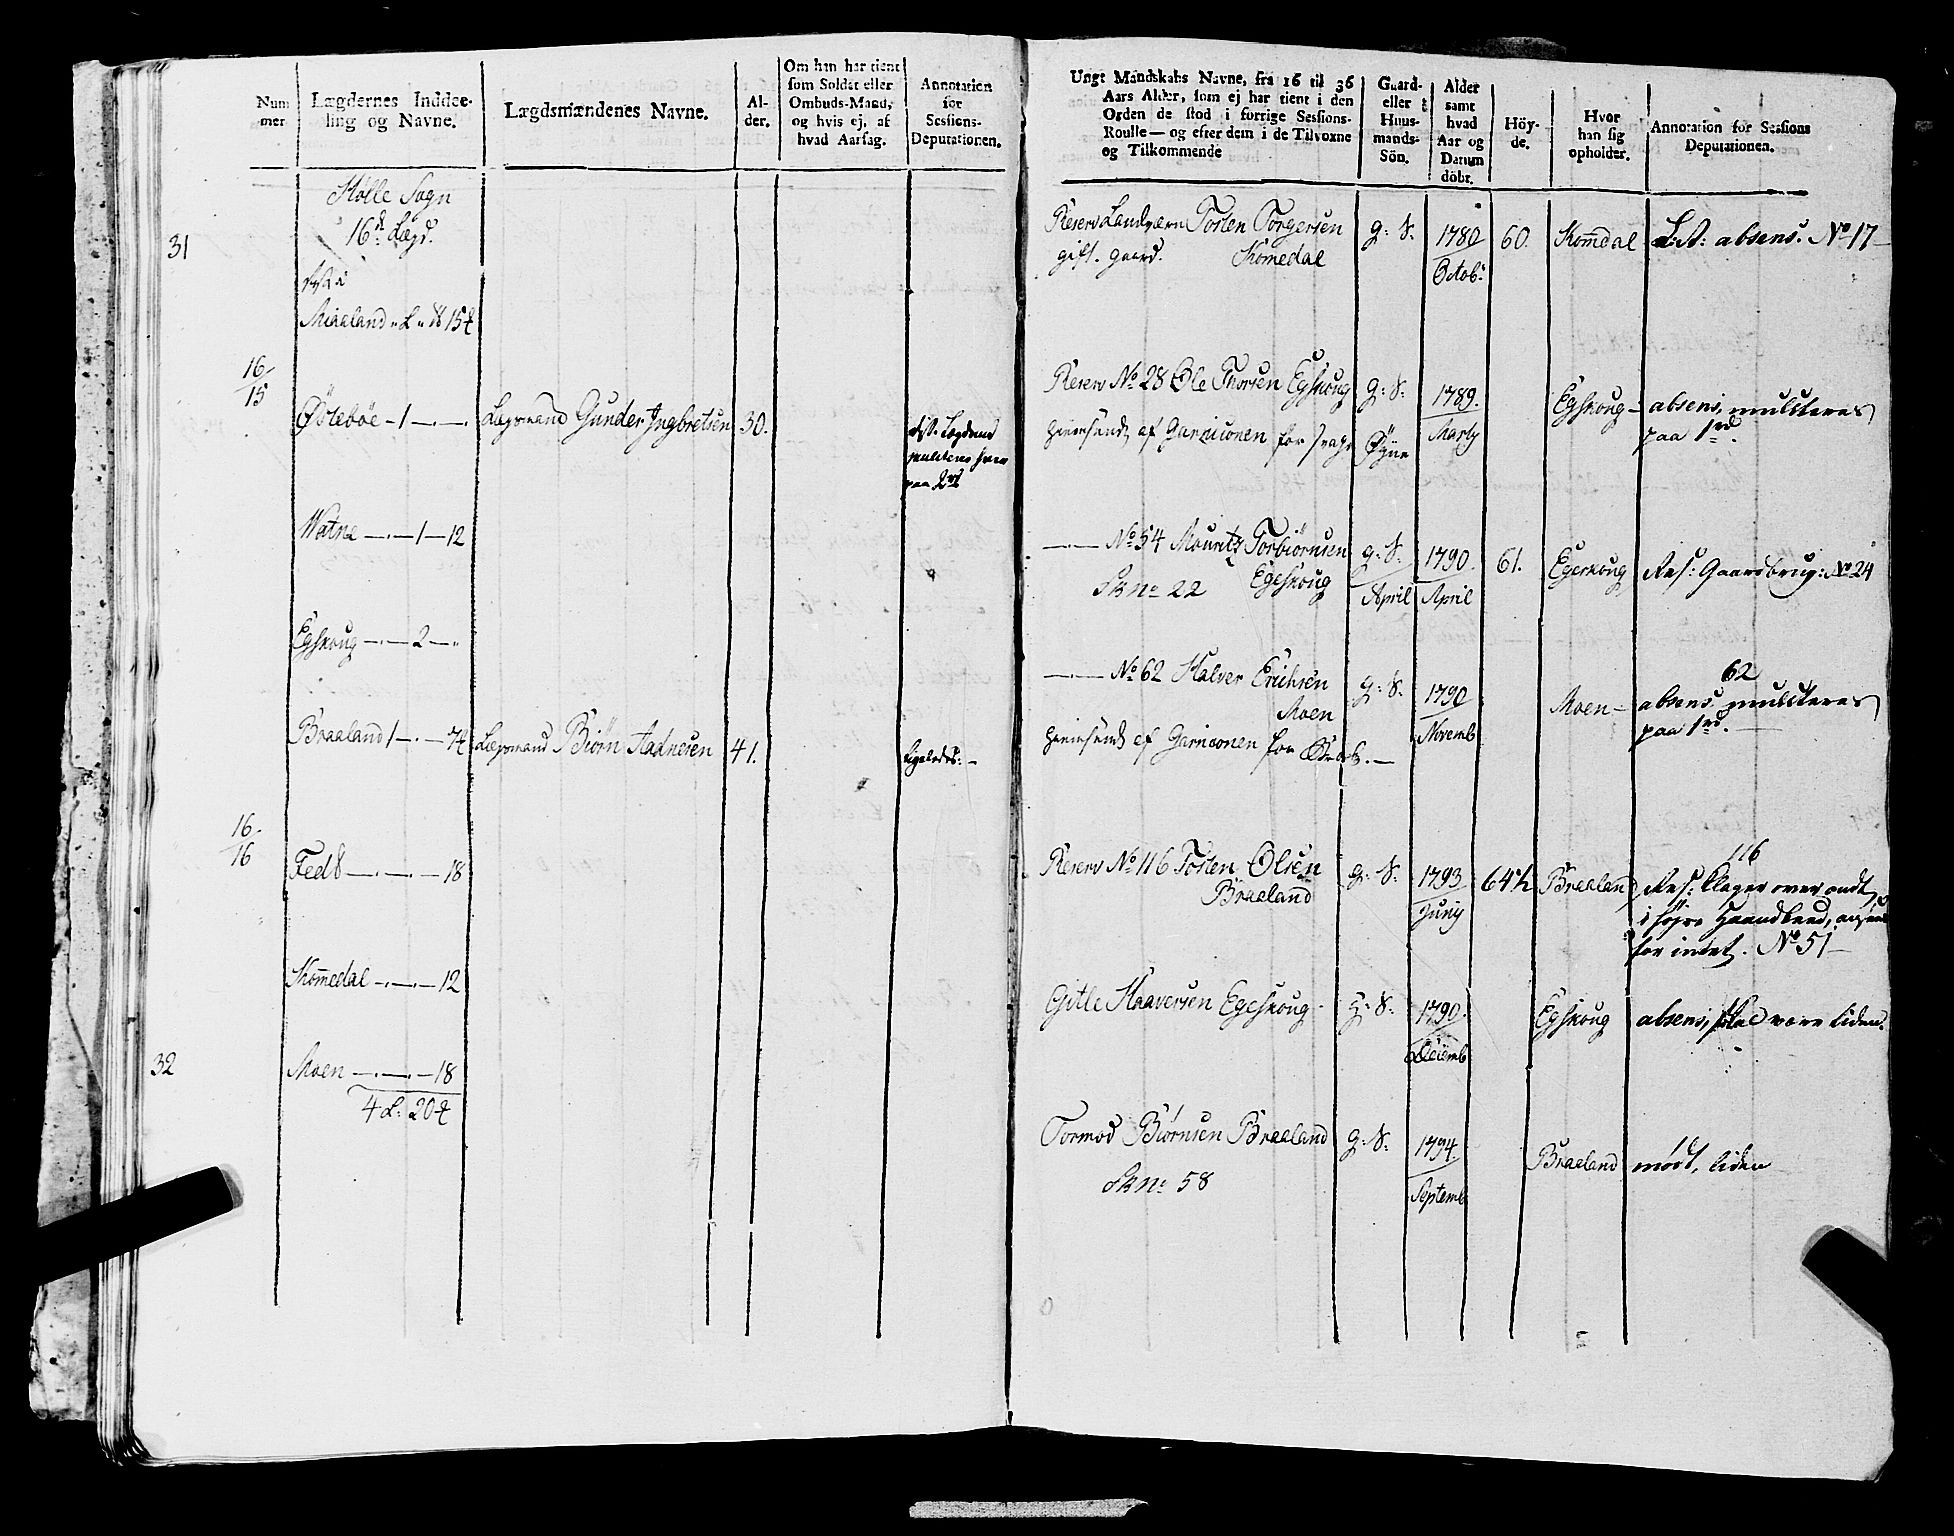 Num
mer
Lægdernes Inddee-
ling og Navne.
Lægdsmændenes Navne.
Al-
der.
Om han har tient
som Soldat eller
Ombuds-Mand,
og hvis ej, af
hvad Aarsag.
Annotation
for
Sessions-
Deputationen.
31
Holle Sogn
16d. Lægd.
Miaaland
16
15
Östebøe - 1 -
Lægsmand Gunder Ingbretsen
30.
Watne - 1 - 12
Egskoug - 2 -
Braaland 1 -
Lægsmand Biørn Aadnesen
41.
ligeledes: -
16
16
Feds - 18
Komedal - 12
32
Moen - 18
Ungt Mandskabs Navne, fra 16 til 36
Aars Alder, som ej har tient i den
Orden de stod i forrige Sessions-
Roulle — og efter dem i de Tilvoxne
og Tilkommende
Gaard-
eller
Huus-
mands-
Sön.
Alder
samt
hvad
Aar og
Datum
döbt.
Höy-
de.
Hvor
han sig
opholder.
Annotation for Sessions
Deputationen.
Reserv Landværn Tosten Torgersen
gift. gaard. Komedal
g: S.
1780
Octob:
60.
Komdal
L: A: absens. No 17
Reserv No 28 Ole Thorsen Egskoug
hiemsendt af Garnisonen for svage Øyne
g: S:
1789.
Marty
Egskoug -
absens, mulcteres
paa 1rd.
No 54 Mouritz Torbiörnsen
Sk No 22 Egeskoug
g: S.
April
1790.
April
61.
Egeskoug
Res: Gaardbrug: No 24
No 62 Halver Erichsen
Moen
hiemsendt af Garnisonen for
g: S.
1790
Novemb
Moen -
62
absens mulcteres
paa 1rd.
Reserv No 116 Tosten Olsen
Braaland
g: S.
1793
Juny
64½
Braaland
116
Res: klager over ondt
i høyre Haandleed,
for intet. No 51
Gitle Haaversen Egeskoug
g: S.
1790.
Decemb
Egskoug
absens, skal være liden.
Tormod Biørnsen Braaland
Sk No 58
g: S:
1794.
Septemb
Braaland
mødt, liden